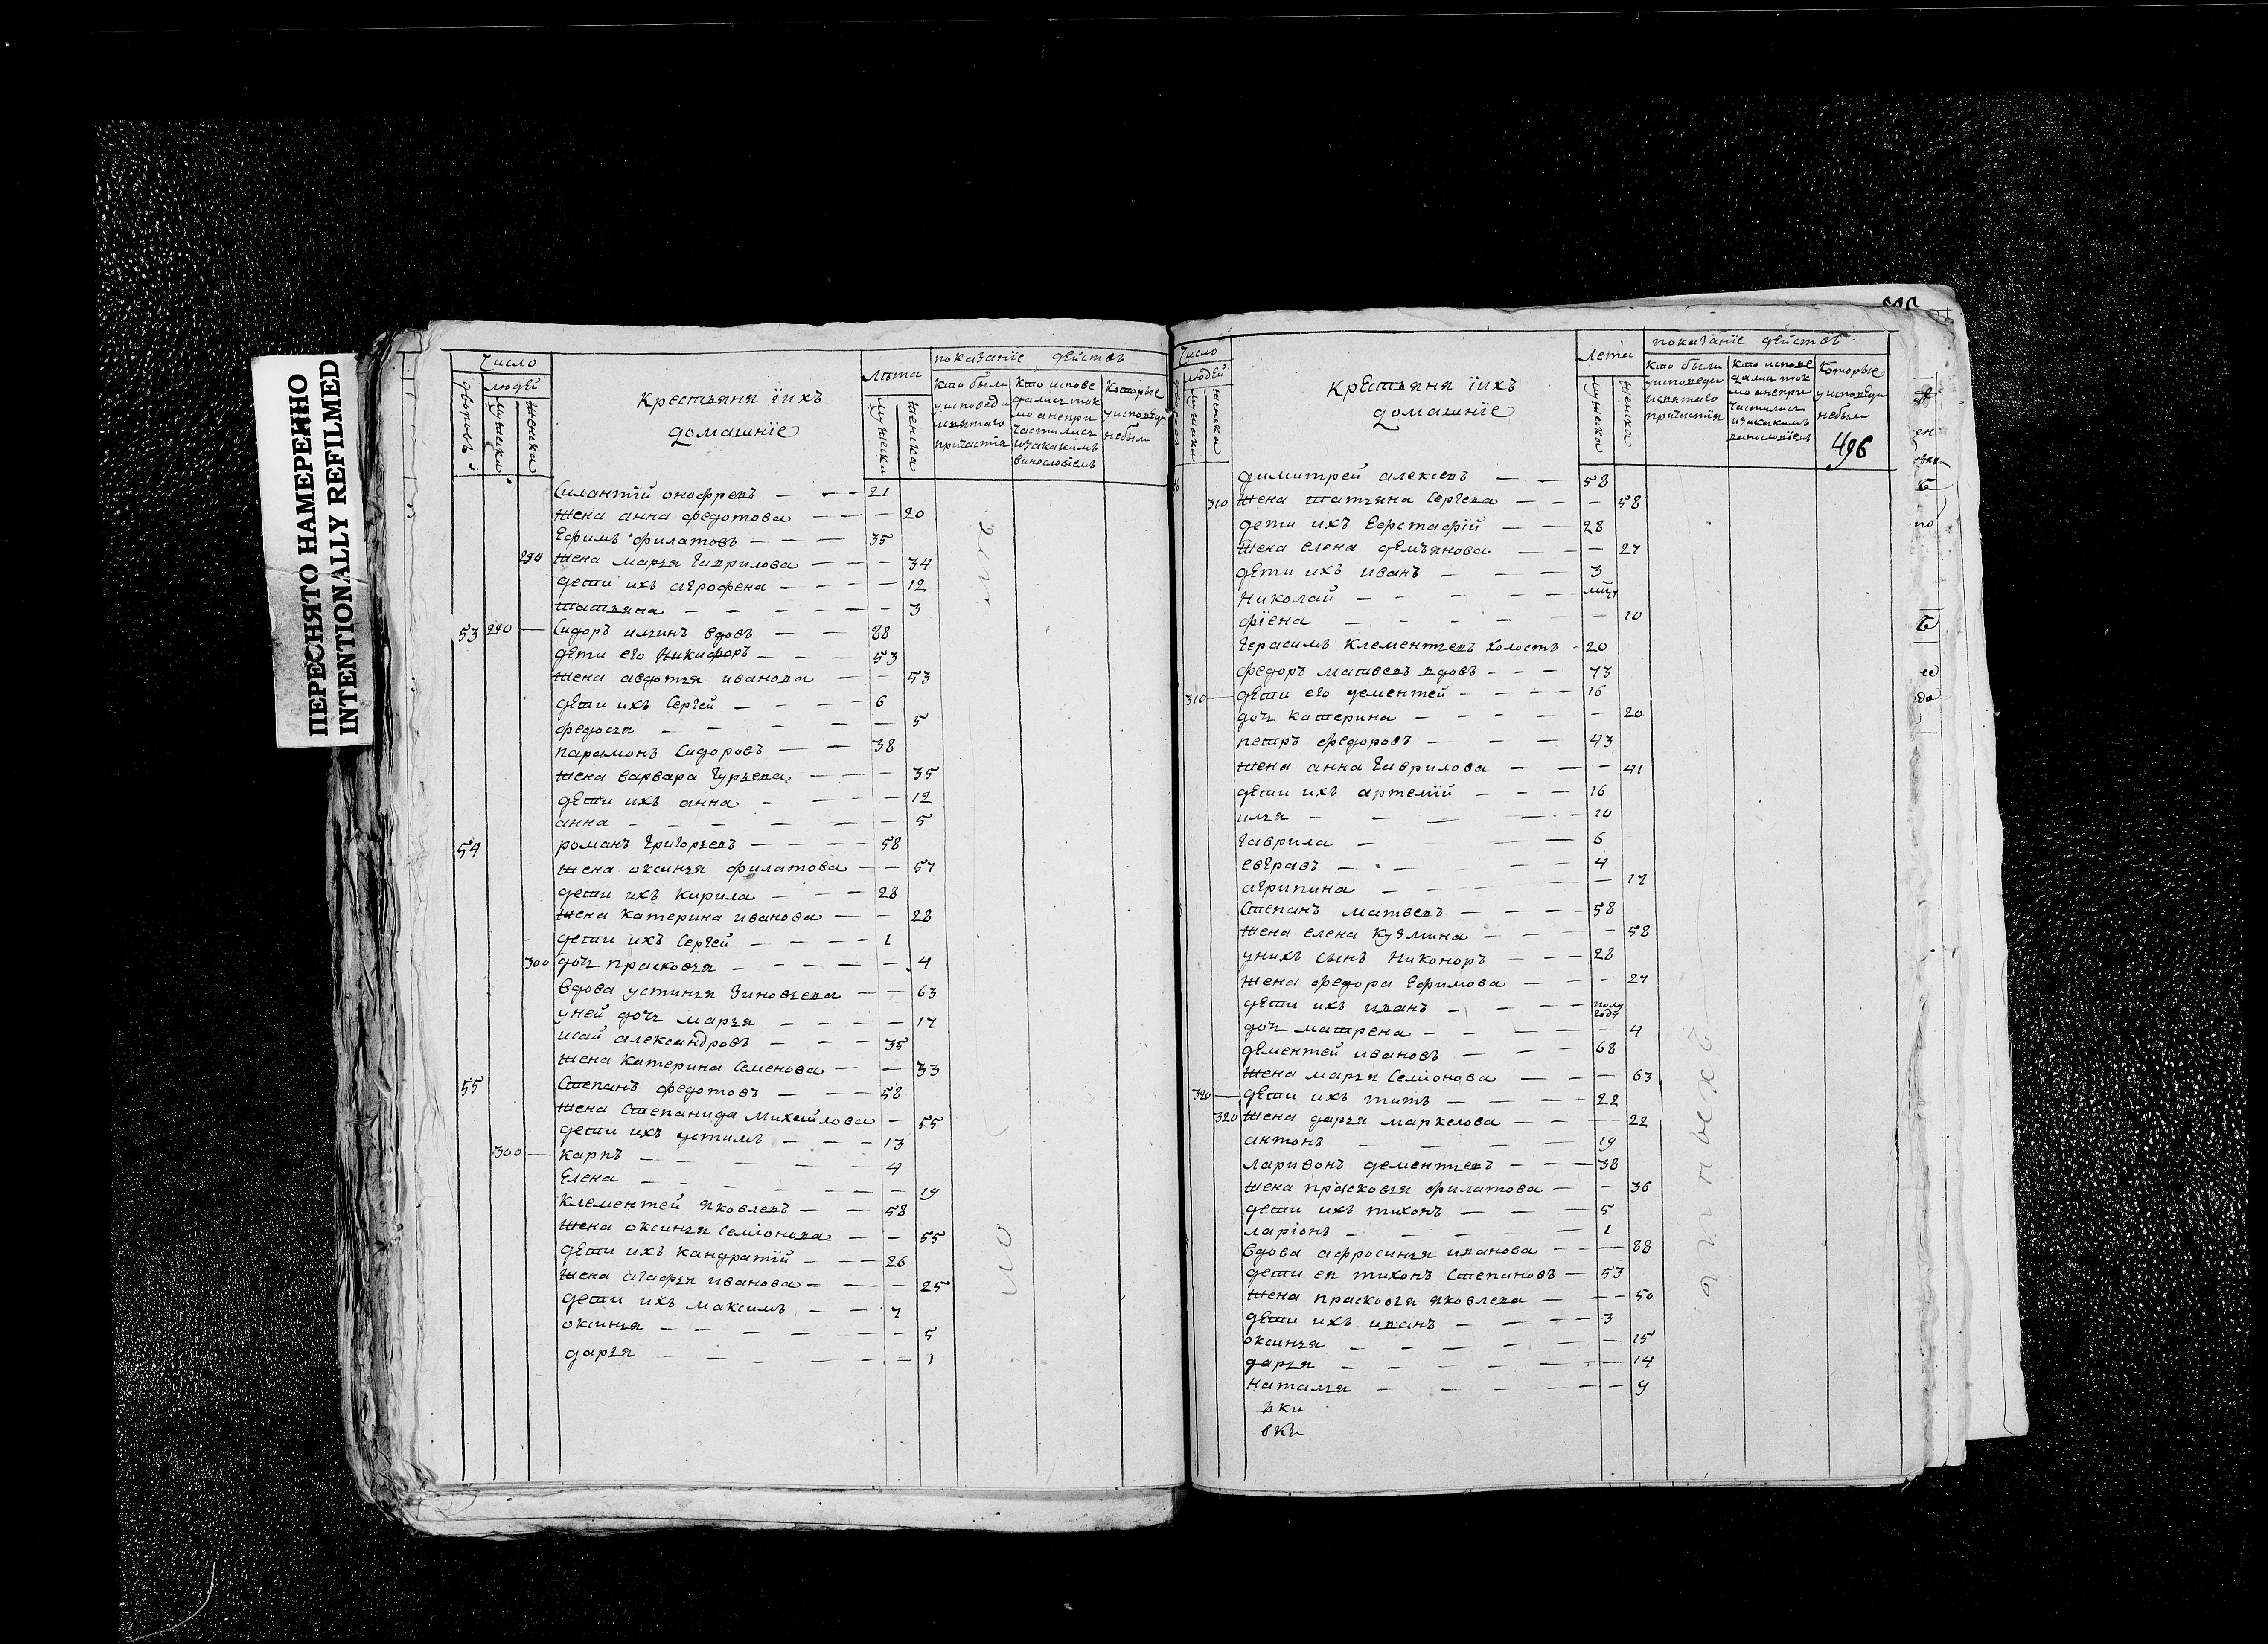 ПЕРЕСНЯТО НАМЕРЕННО
INTENTIONALLY REFILMED
Число
людей
дворовъ
мужеска
женска
крестьяня іихъ
домашніе
лѣта
мужеска
женска
показаніе действъ
кто были
исвятаго
причастія
кто испове
дались ток
мо анепри
частились
изакакимъ
винословіемъ
которые
небыли
Силантій онофревъ — — — 21
жена анна федотова — — — 20
Ефимъ филатовъ — — — 35
290 жена марья гаврилова — — — 34
дети ихъ агрофена — — — — 12
татьяна — — — — — — 3
53 290 — Сидоръ илинъ вдовъ — — 88
дети его никифоръ — — — 53
жена авдотья иванова — — 53
дети ихъ Сергей — — — — 6
федосья — — — — — 5
парамонъ Сидоровъ — — 38
жена варвара гурьева — — — 35
дети ихъ анна — — — — 12
анна — — — — — — 5
54 романъ григорьевъ — — — — 58
жена оксинья филатова — — 57
дети ихъ кирила — — — 28
жена катерина иванова — — 28
дети ихъ Сергей — — — — 1
300 дочь прасковья — — — — — 4
вдова устинья зиновьева — — 63
уней дочь марья — — — — — 17
исай александровъ — — — 35
жена катерина Семенова — — 33
55 Степанъ федотовъ — — — 58
жена Степанида михайлова — 55
дети ихъ устимъ — — — 13
300 — карпъ — — — — — 4
Елена — — — — — — 19
клементей яковлевъ — — 58
жена оксинья Семіонова — — 55
дети ихъ кандратій — — — 26
жена агафья иванова — — — — 25
дети ихъ максимъ — — 7
оксинья — — — — — — 5
дарья — — — — — 1
Число
людей
мужеска
женска
крестьяня іихъ
домашніе
лета
мужеска
женска
показаніе действъ
кто были
уисповеди
исвятаго
причастія
кто испове
дались ток
мо анепри
частились
изакакимъ
винословіемъ
которые
уисповеди
небыли
496
димитрей алексевъ — — 58
310 жена татьяна Сергева — — — 58
дети ихъ Евстафій — — 28
жена елена демьянова — — — 27
дети ихъ иванъ — — — 3
николай — — — — —
фіена — — — — — 10
герасимъ клементьевъ холостъ — 20
федоръ матвевъ вдовъ — — — 73
310 — дети его дементей — — — — 16
дочь катерина — — — — — 20
петръ федоровъ — — — 43
жена анна гаврилова — — — 41
дети ихъ артемій — — — 16
илья — — — — 10
гаврила — — — 6
евгравъ — — — — 4
агрипина — — — — — 17
Степанъ матвевъ — — — — 58
жена елена кузмина — — — — 58
унихъ сынъ никоноръ — — — 28
жена федора Ефимова — — — 27
дети ихъ иванъ — — — полу
года
дочь матрена — — — — — 4
дементей ивановъ — — — 68
жена марья Семіонова — — — 63
320 — дети ихъ титъ — — — — 22
320 жена дарья маркелова — — — 22
антонъ — — — — — 19
ларивонъ дементьевъ — — — 38
жена прасковья филатова — — 36
дети ихъ тихонъ — — — 5
ларіонъ — — — — — 1
вдова афросинья иванова — — — 88
дети ея тихонъ Степановъ — 53
жена прасковья яковлева — — — 50
дети ихъ иванъ — — — — 3
оксинья — — — — — — 15
дарья — — — — — — 14
наталья — — — — — — 9